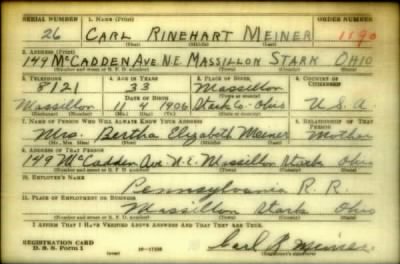 SERIAL NUMBER 1. NAME (Print) ORDER NUMBER
26 CARL RINEHART MEINER 1190
(First) (Middle) (Last)
2. ADDRESS (Print)
149 McCADDEN AVE N.E. MASSILLON STARK OHIO
(Number and street or R. F. D. number) (Town) (County) (State)
3. TELEPHONE 4. AGE IN YEARS 5. PLACE OF BIRTH 6. COUNTRY OF CITIZENSHIP
8121 33 Massillon
DATE OF BIRTH
Massillon 11 4 1906 Stark Co. Ohio U.S.A.
(Exchange) (Number) (Mo.) (Day) (Yr.) (Town or county) (State or country)
7. NAME OF PERSON WHO WILL ALWAYS KNOW YOUR ADDRESS 8. RELATIONSHIP OF THAT PERSON
Mrs. Bertha Elizabeth Meiner Mother
(Mr., Mrs., Miss) (First) (Middle) (Last)
9. ADDRESS OF THAT PERSON
149 McCadden Ave N.E. Massillon Stark Ohio
(Number and street or R. F. D. number) (Town) (County) (State)
10. EMPLOYER'S NAME
Pennsylvania R. R.
11. PLACE OF EMPLOYMENT OR BUSINESS
Massillon Stark Ohio
(Number and street or R. F. D. number) (Town) (County) (State)
I AFFIRM THAT I HAVE VERIFIED ABOVE ANSWERS AND THAT THEY ARE TRUE.
REGISTRATION CARD
D. S. S. Form 1 Carl R Meiner